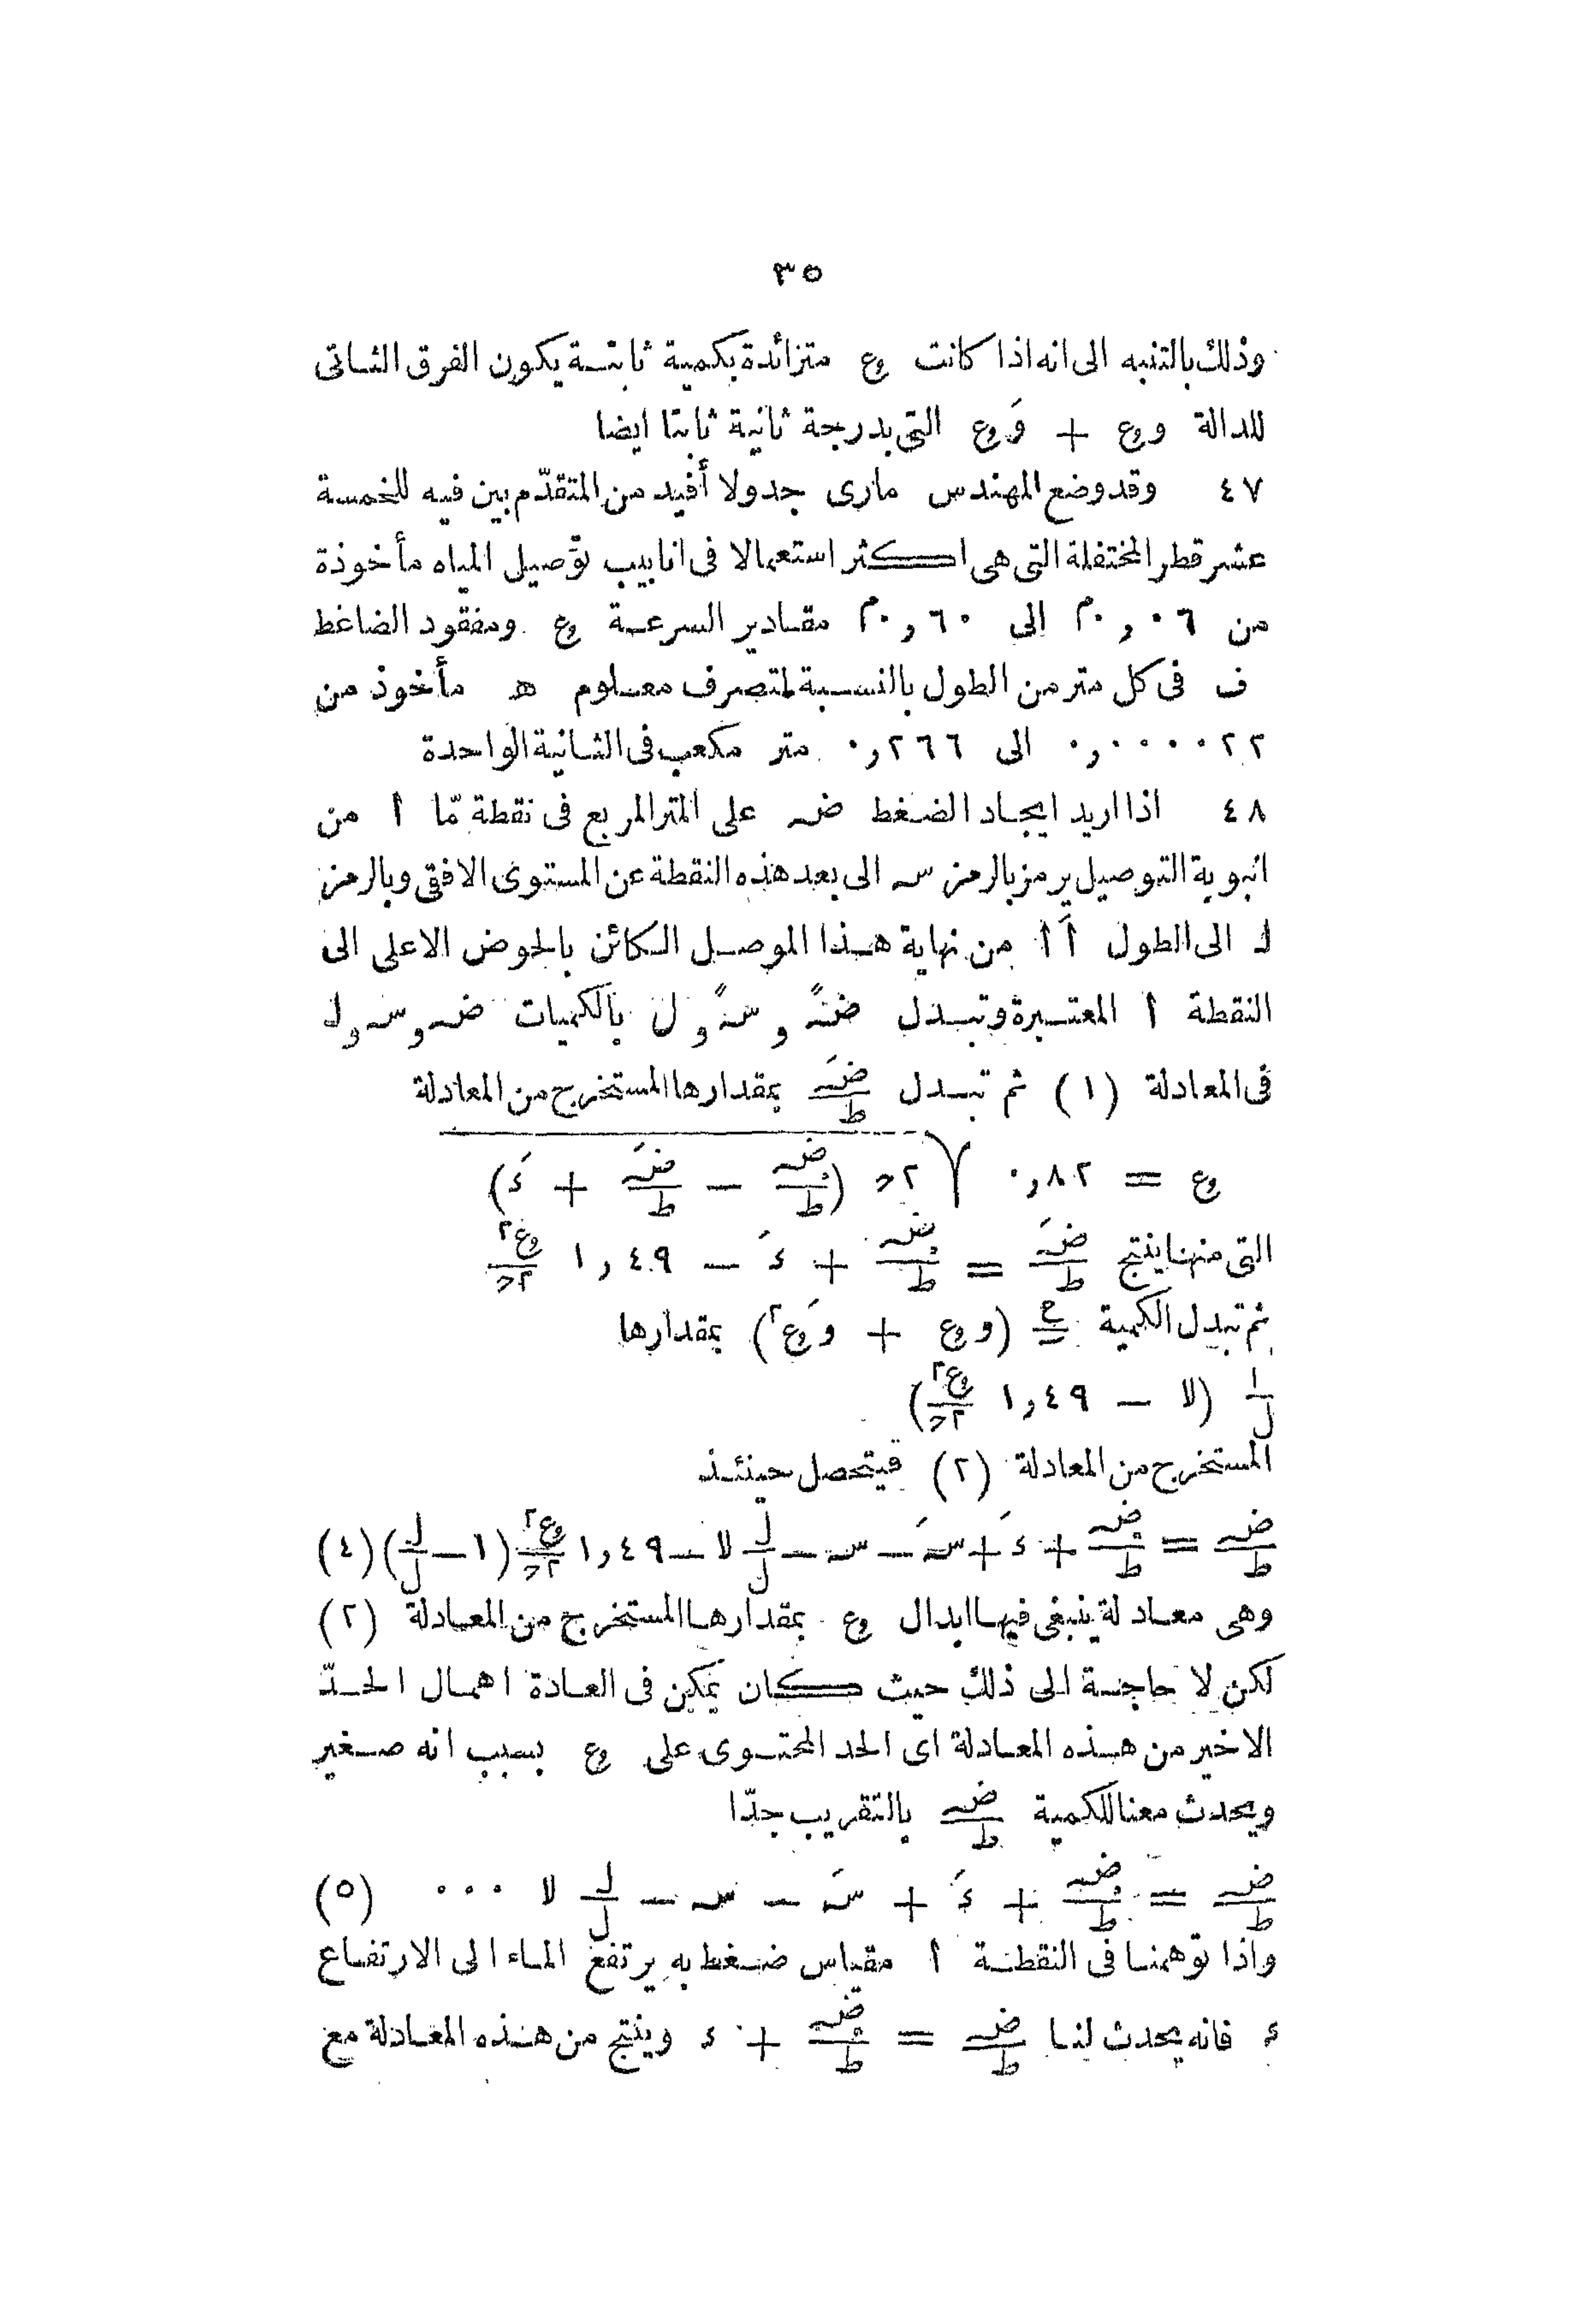 ٣٥
وذلك بالتنبه الى انه اذا كانت ع متزائدة بكمية ثابتة يكون الفرق الثانى
للدالة وع + وَع التى بدرجة ثانية ثابتا ايضا
٤٧ وقد وضع المهندس مارى جدولا أفيد من المتقدّم بين فيه للخمسة
عشر قطر المختفلة التى هى اكثر استعمالا فى انابيب توصيل المياه مأخوذة
من ٠,٠٦م الى ٠,٦٠م مقادير السرعة ع ومفقود الضاغط
ف فى كل متر من الطول بالنسبة لتصرف معلوم ھ مأخوذ من
٠,٠٠٠٠٢٢ الى ٠,٢٦٦ متر مكعب فى الثانية الواحدة
٤٨ اذا اريد ايجاد الضغط ضہ على المتر المربع فى نقطة مّا ا من
انبوبة التوصيل يرمز بالرمز سہ الى بعد هذه النقطة عن المستوى الافقى وبالرمز
لـ الى الطول اَ ا من نهاية هذا الموصل الكائن بالحوض الاعلى الى
النقطة ا المعتبرة وتبدل ضہً و سہً و ل بالكميات ضہ و سہ و لـ
فى المعادلة (١) ثم تبدل ضہَ/ط بمقدارها المستخرج من المعادلة
ع = ٠,٨٢ √٢ح (ضہ/ط − ضہَ/ط + ءَ)
التى منها ينتج ضہَ/ط = ضہ/ط + ءَ − ١,٤٩ ع٢/٢ح
ثم تبدل الكمية (وع + وَع٢) بمقدارها
١/ل (لا − ١,٤٩ ع٢/٢ح)
المستخرج من المعادلة (٢) فيتحصل حينئذ
ضہ/ط = ضہ/ط + ءَ + سہَ − سہ − لـ/ل لا − ١,٤٩ ع٢/٢ح (١ − لـ/ل) (٤)
وهى معادلة ينبغى فيها ابدال ع بمقدارها المستخرج من المعادلة (٢)
لكن لا حاجة الى ذلك حيث كان يمكن فى العادة اهمال الحدّ
الاخير من هذه المعادلة اى الحد المحتوى على ع بسبب انه صغير
ويحدث معنا للكمية ضہ/ط بالتقريب جدّا
ضہ/ط = ضہ/ط + ءَ + سہَ − سہ − لـ/ل لا ... (٥)
واذا توهمنا فى النقطة ا مقياس ضغط به يرتفع الماء الى الارتفاع
ء فانه يحدث لنا ضہ/ط = ضہ/ط + ء وينتج من هذه المعادلة مع